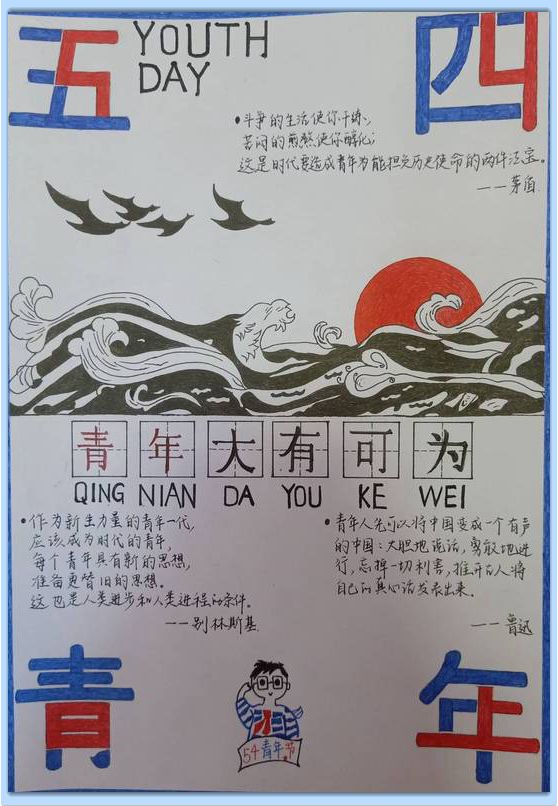 五
YOUTH
DAY
四
•斗争的生活使你干练、
苦闷的煎熬使你醇化；
这是时代要造成青年为能担负历史使命的两件法宝。
——茅盾
青年大有可为
QING NIAN DA YOU KE WEI
•作为新生力量的青年一代，
应该成为时代的青年，
每个青年具有新的思想，
准备更替旧的思想。
这也是人类进步和人类进程的条件。
——别林斯基
•青年人先可以将中国变成一个有声
的中国：大胆地说话，勇敢地进
行，忘掉一切利害，推开古人将
自己的真心话发表出来.
——鲁迅
青
54青年节
年